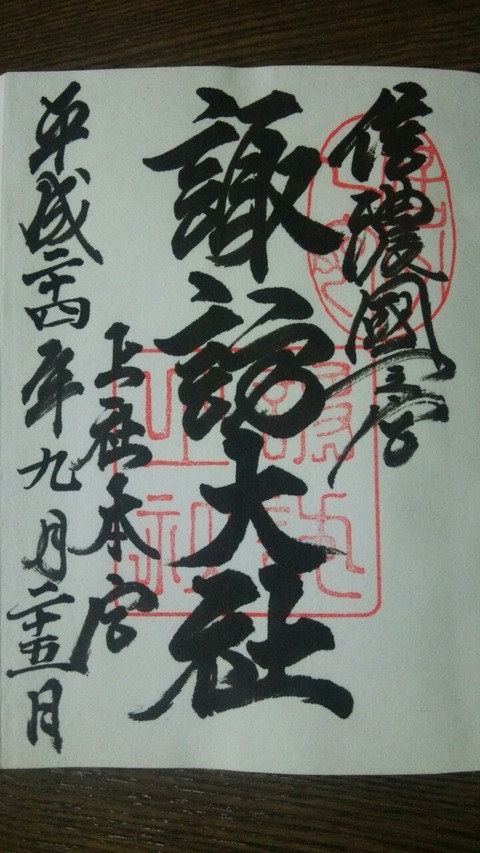 信濃國一宮
諏訪大社
上社本宮
平成二十四年九月二十五日